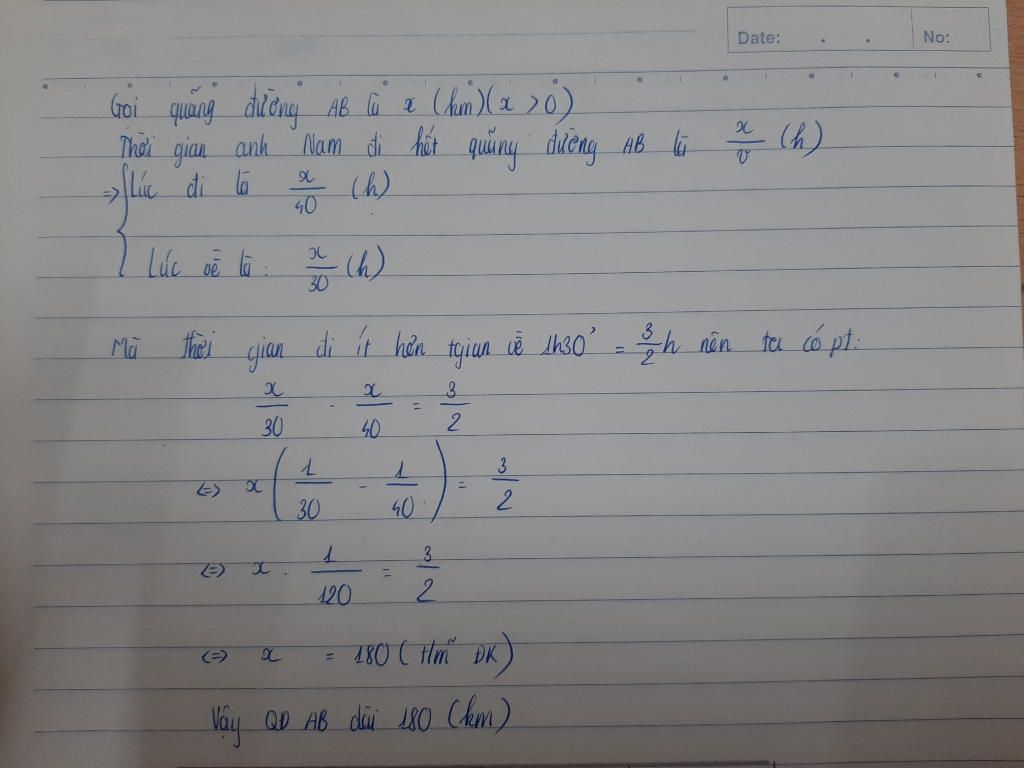 Date: . . No:
Gọi quãng đường AB là x (km)(x > 0)
Thời gian anh Nam đi hết quãng đường AB là x/v (h)
=> { Lúc đi là x/40 (h)
Lúc về là : x/30 (h)
Mà thời gian đi ít hơn tgian về 1h30' = 3/2 h nên ta có pt:
x/30 - x/40 = 3/2
<=> x (1/30 - 1/40) = 3/2
<=> x . 1/120 = 3/2
<=> x = 180 (t/m ĐK)
Vậy QĐ AB dài 180 (km)